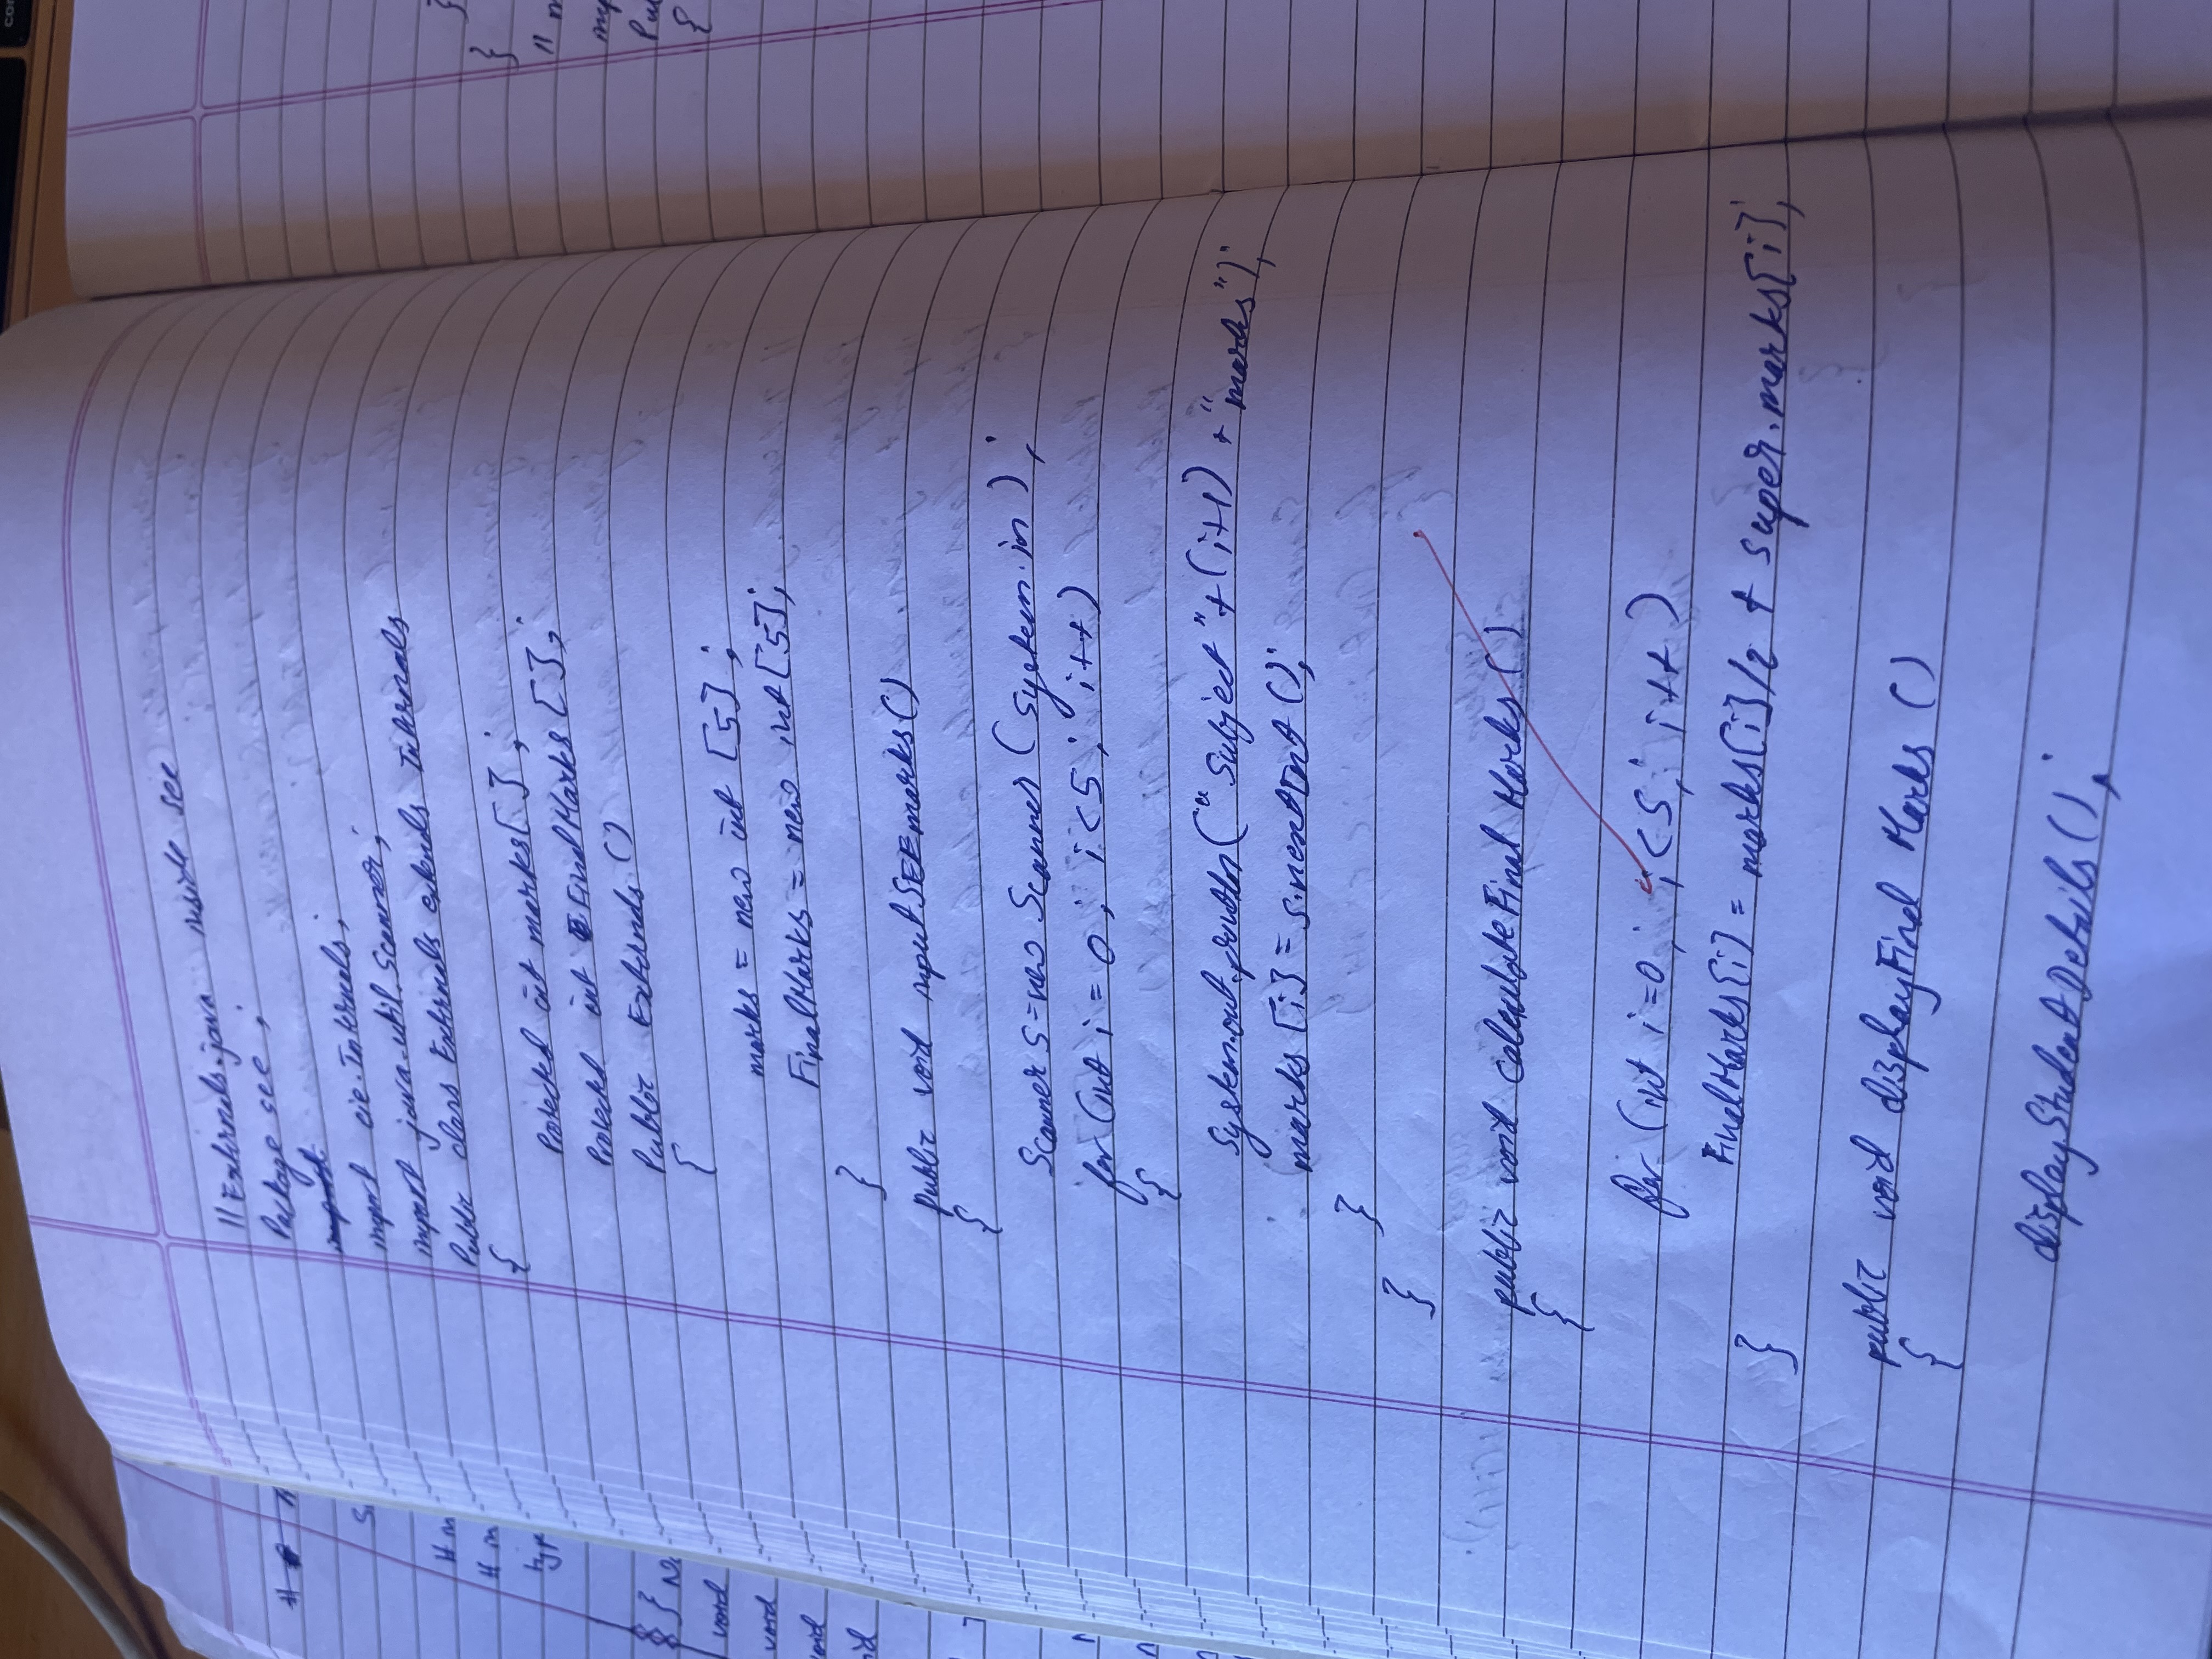 // Externals.java inside see
Package see ;
import
import cie.Internals;
import java.util.Scanner;
Public class Externals extends Internals
{
Protected int marks[ ] ;
Protected int FinalMarks [ ];
Public Externals ()
{
marks = new int [5] ;
FinalMarks = new int[5];
}
public void inputSEEmarks()
{
Scanner s=new Scanner (System.in ) ;
for (int i = 0 ; i<5 ; i++)
{
System.out.println("Subject"+(i+1) +"marks");
marks [i] = s.nextInt ();
}
}
public void calculateFinal Marks ()
{
for (int i=0 ; i<5; i++ )
FinalMarks[i] = marks[i]/2 + super.marks[i];
}
public void displayFinal Marks ()
{
displayStudentDetails();
type
void
void
}
}
{